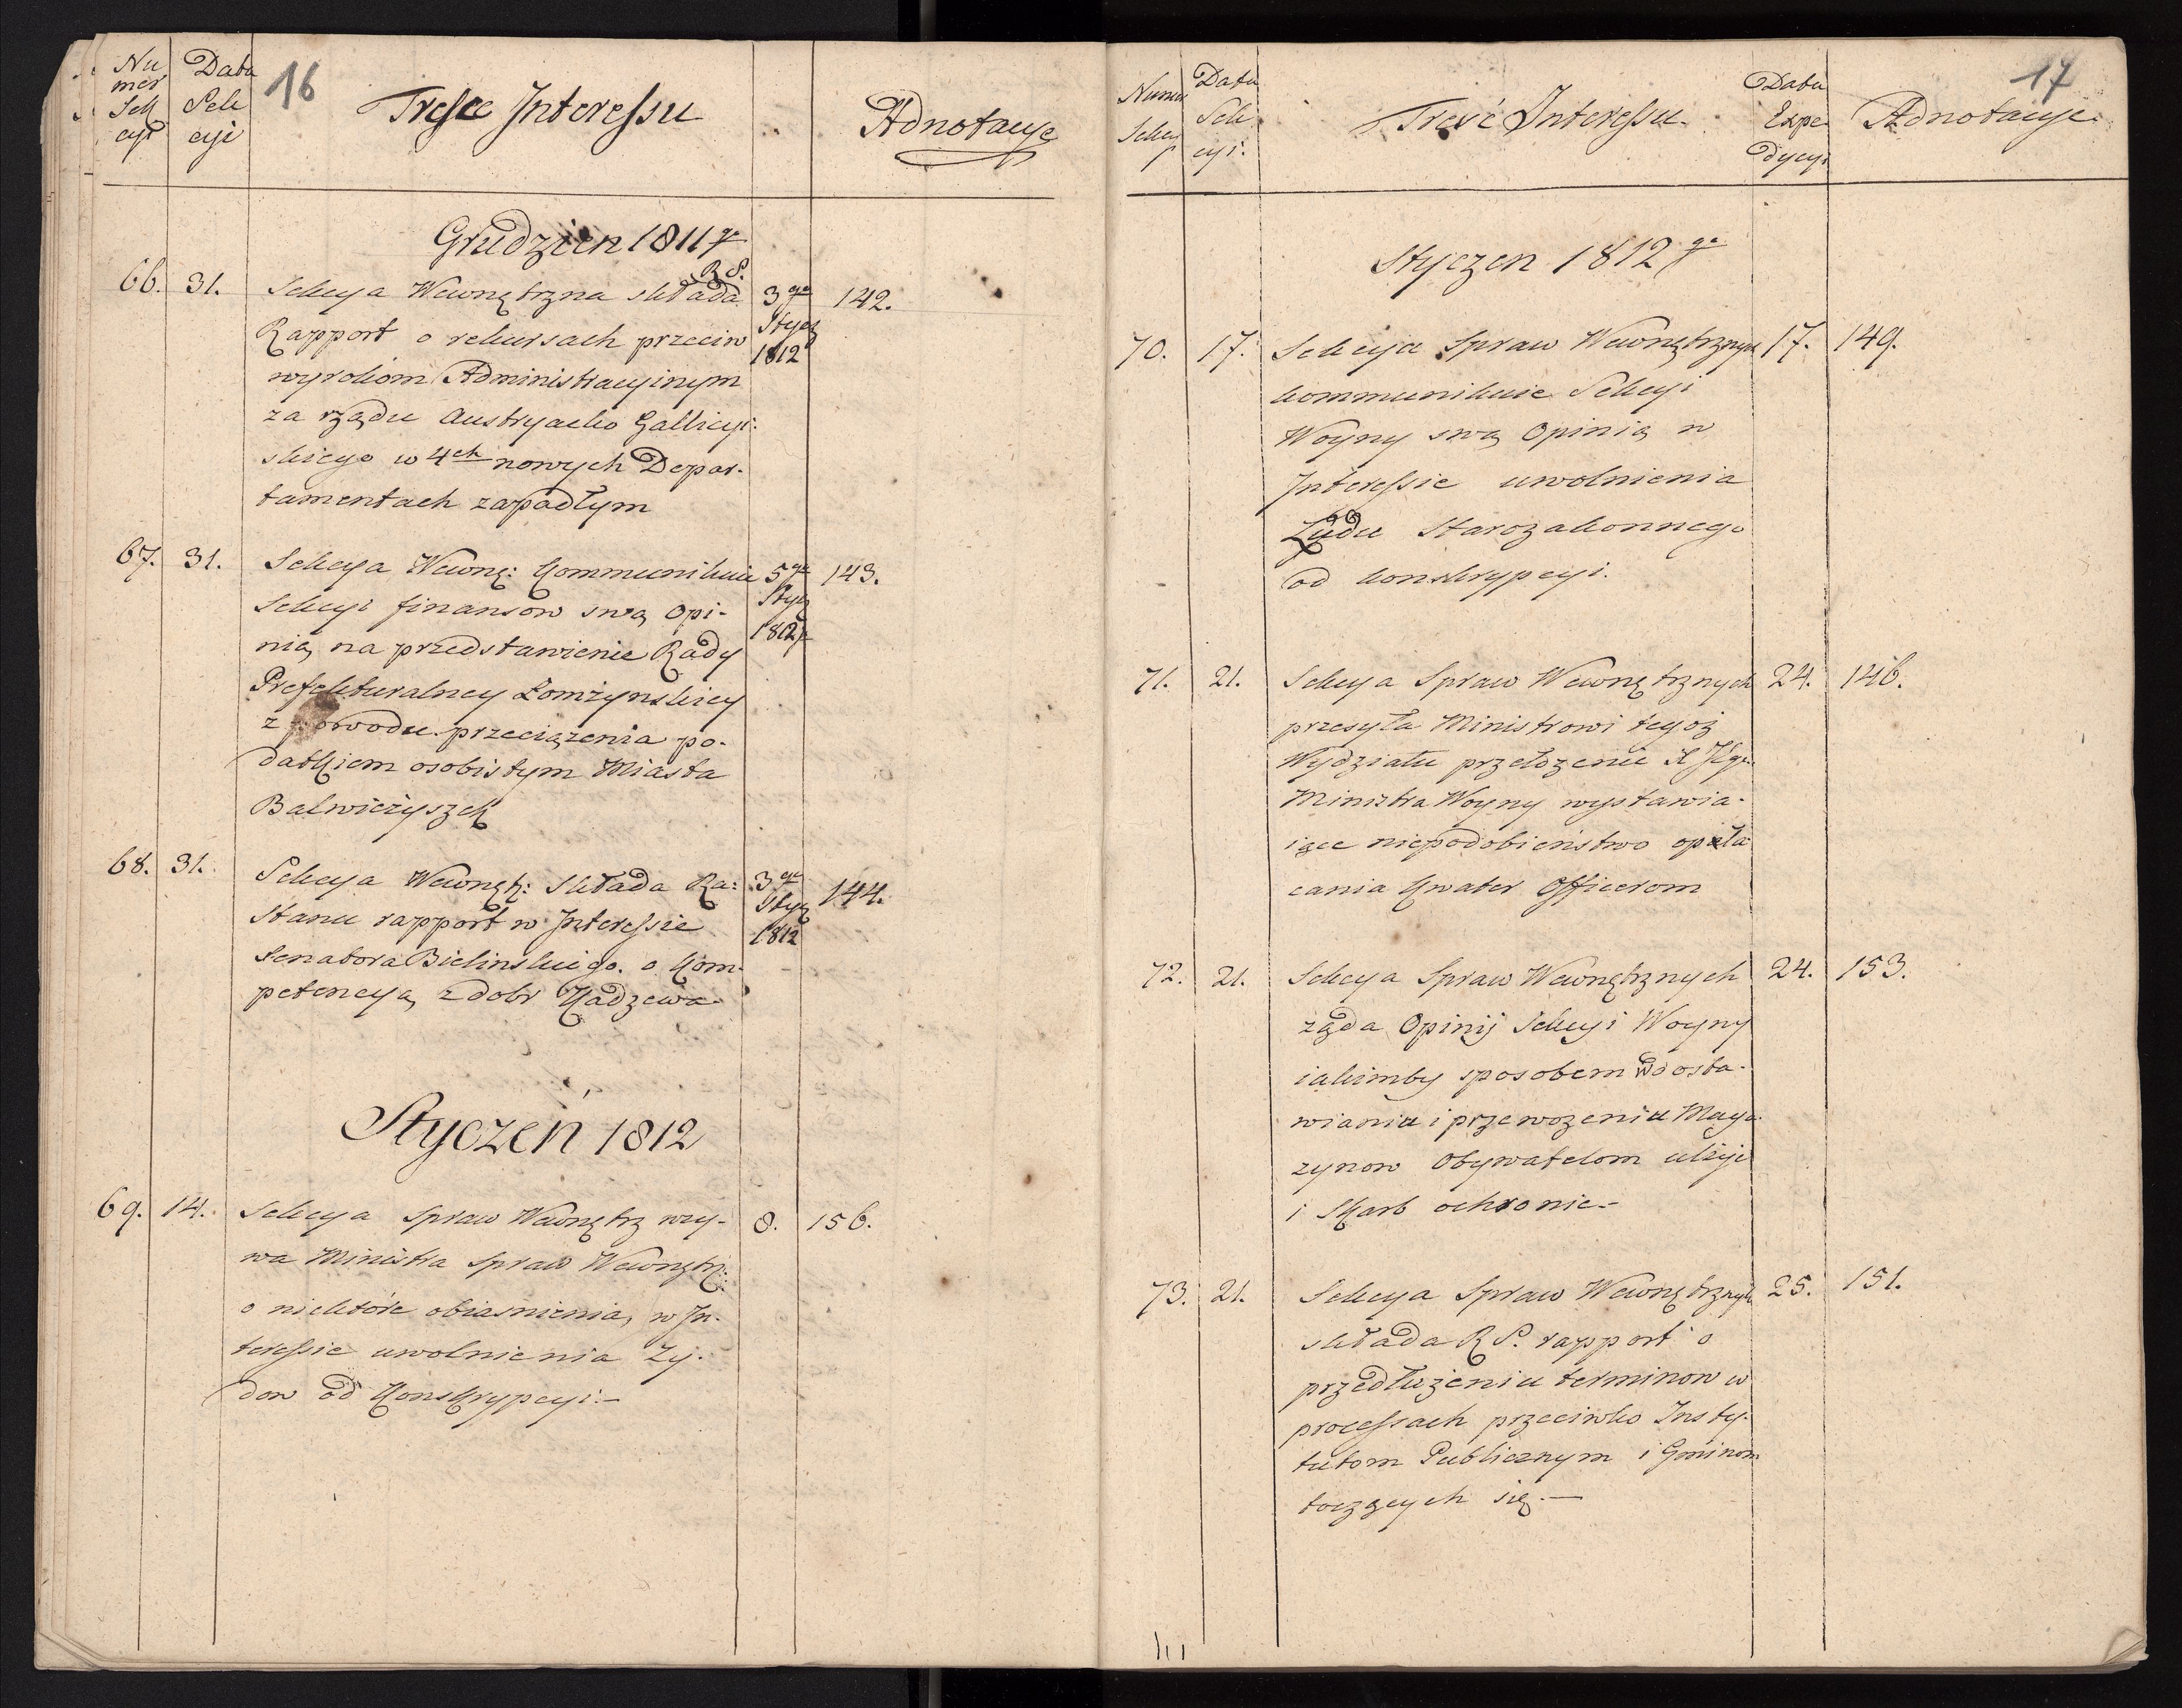 Nu
mer
Sek
cyi
Data
Sek
cyi
16
Tresce Interessu
Adnotacye
Grudzien 1811 go
R S.
66. 31. Sekcya Wewnętrzna składa 3 go 142.
Rapport o rekursach przeciw Stycz
wyrokom Administracyinym 1812
za rządu Austryacko Gallicyi-
skiego w 4ch nowych Depar-
tamentach zapadłym
67. 31. Sekcya Wewnę: Kommunikuie 5 go 143.
Sekcyi finansow swą Opi- Stycz
nią na przedstawienie Rady 1812
Prefekturalney Łomżynskiey
z powodu przeciążenia po-
datkiem osobistym Miasta
Balwieżyszek
68. 31. Sekcya Wewnętr: składa Ra: 3 go 144.
Stanu rapport w Interessie Stycz
Senatora Bielinskiego. o Kom- 1812
petencyą z dobr Kadzewa
Styczeń 1812
69. 14. Sekcya Spraw Wewnętrz wzy- 8. 156.
wa Ministra Spraw Wewnętrz:
o niektóre obiasnienia, w In-
teressie uwolnienia Ży-
dow od Konskrypcyi:-
Numer
Sekcy
Data
Sek
cyi.
Tresć Interessu
Data
Expe
dycyi
17
Adnotacyje
Styczen 1812 go
70. 17. Sekcyja Spraw Wewnętrznych 17. 149.
kommunikuie Sekcyi
Woyny swą Opinią w
Interessie uwolnienia
Ludu Starozakonnego
od konskrypcyi.
71. 21. Sekcya Spraw Wewnętrznych 24. 146.
przesyła Ministrowi tegoż
Wydziału przełożenie
Ministra Woyny wystawia-
iące niepodobieństwo opła
cania Kwater Officerom
72. 21. Sekcya Spraw Wewnętrznych 24. 153.
ząda Opinij Sekcyi Woyny
iakimby sposobem w dosta-
wianiu i przewozeniu Maga-
zynow Obywatelom ulżyć
i Skarb ochronic.-
73. 21. Sekcya Spraw Wewnętrznych 25. 151.
składa R S. rapport o
przedłużeniu terminow w
processach przeciwko Insty-
tutom Publicznym i Gminom
toczących się.-